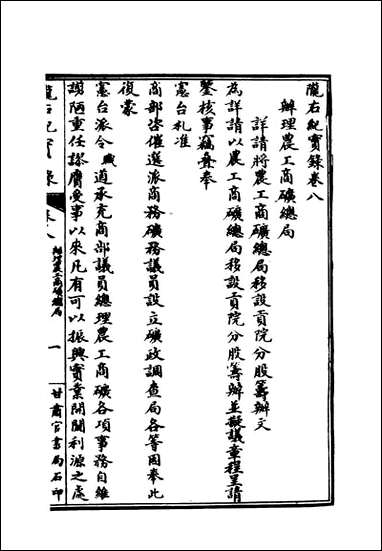 隴右紀實錄卷八
辦理農工商礦總局
詳請將農工商礦總局移設貢院分股籌辦文
為詳請以農工商礦總局移設貢院分股籌辦並擬議章程呈請
鑒核事竊彙奉
憲台札准
商部咨催選派商務礦務議員設立礦政調查局各等因奉此
復蒙
憲台派令職道承充商部議員總理農工商礦各項事務自維
謭陋重任謬膺受事以來凡有可以振興實業開闢利源之處
隴右紀實錄
卷八
辦理農工商礦總局
一
甘肅官書局石印